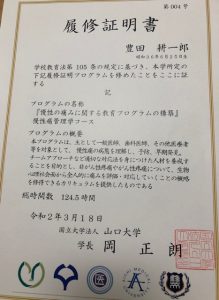 第004号
履修証明書
豊田 耕一郎
学校教育法第105条の規定に基づき、本学所定の
下記履修証明プログラムを修めたことをここに証
する
記
プログラムの名称
『慢性の痛みに関する教育プログラムの構築』
慢性痛管理学コース
プログラムの概要
本プログラムは、主として一般医師、歯科医師、その他医療者
等を対象として、慢性痛の病態を理解し、予防、早期発見、
チームアプローチなど適切な対応法を身につけた人材を養成
することを目的とし、非がん性疼痛やがん性疼痛について、生物
心理社会面から全人的に痛みを評価・対応していくことの戦略
を修得できるカリキュラムを提供したものである
総時間数 124.5時間
令和2年3月18日
国立大学法人 山口大学
学長 岡 正朗